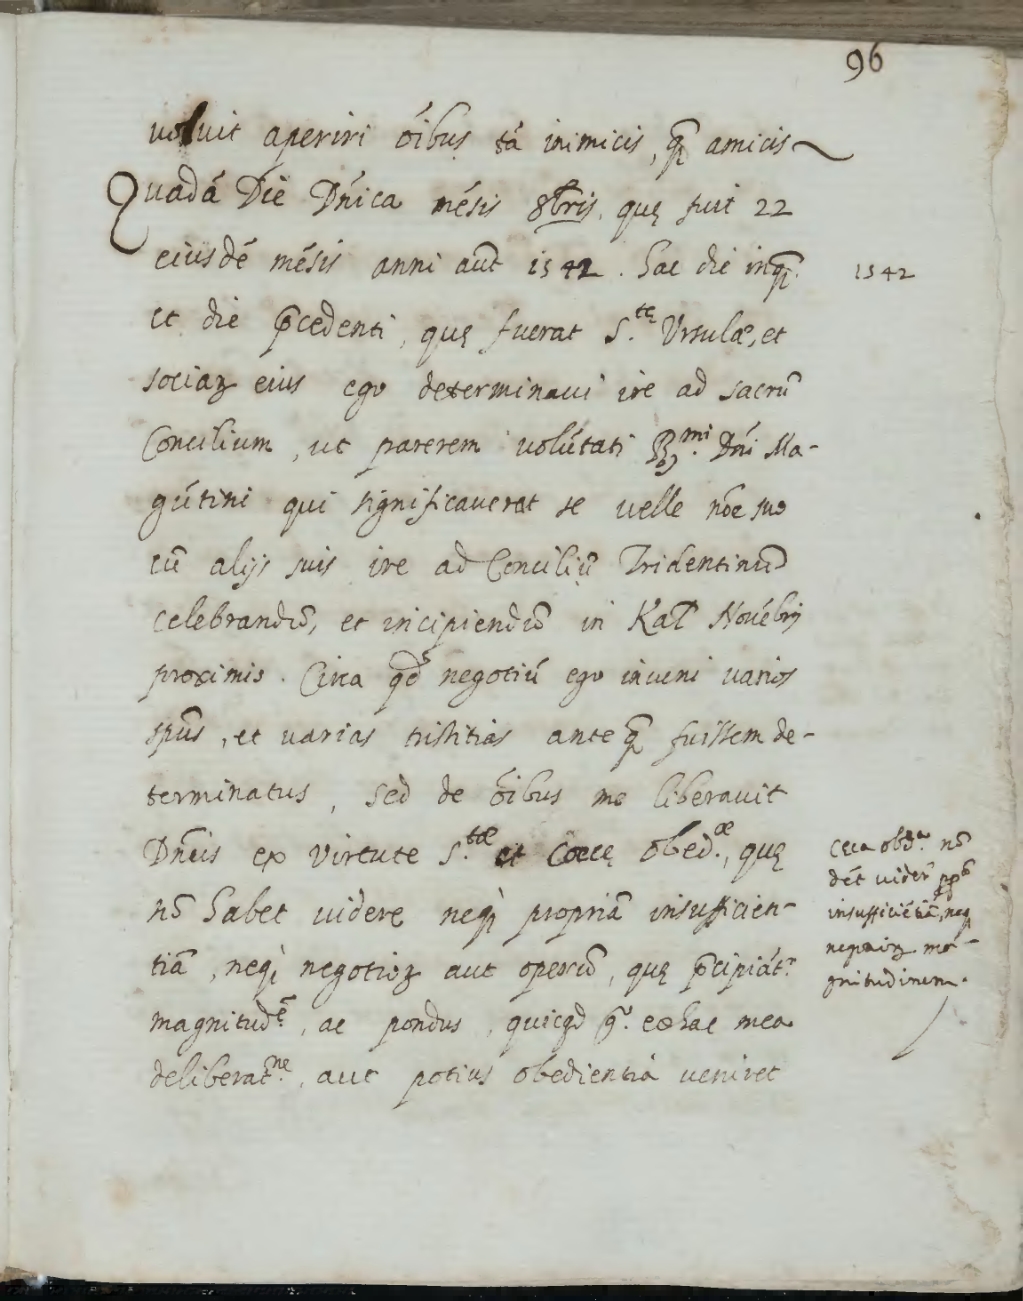 96
voluit aperiri ōibus tā inimicis, q̄ amicis
Quadā Die Dn̄ica mēsis 8bris, quę fuit 22
eiusdē mēsis anni aūt 1542. hac die inq̄
1542
et die p̄cedenti, quę fuerat S.tę Ursulæ, et
sociaꝝ eius ego determinaui ire ad sacrū
Concilium, ut parerem volūtati R.mi Dn̄i Ma-
gūtini qui significauerat se velle nōe suo
cū alijs suis ire ad Conciliū Tridentinū
celebrandū, et incipiendū in Kal̄ Novēbrij
proximis. Circa qd̄ negotiū ego inueni varios
spūs, et varias tristitias ante q̄ fuissem de-
terminatus, sed de ōibus me liberauit
Dn̄us ex virtute S.tæ et Coecę obed.æ, quę
nō habet videre neq; propriā insufficien-
tiā, neq; negotioꝝ aut operū, quę p̄cipiāt.r
magnitud.ē, ac pondus, quicqd q̄. ex hac mea
deliberat.ne, aut potius obedientiā veniret
ceca obed.a nō
dēt vider̄ pp̄ā
insufficiētiā, neq;
negotioꝝ ma-
gnitudinem.